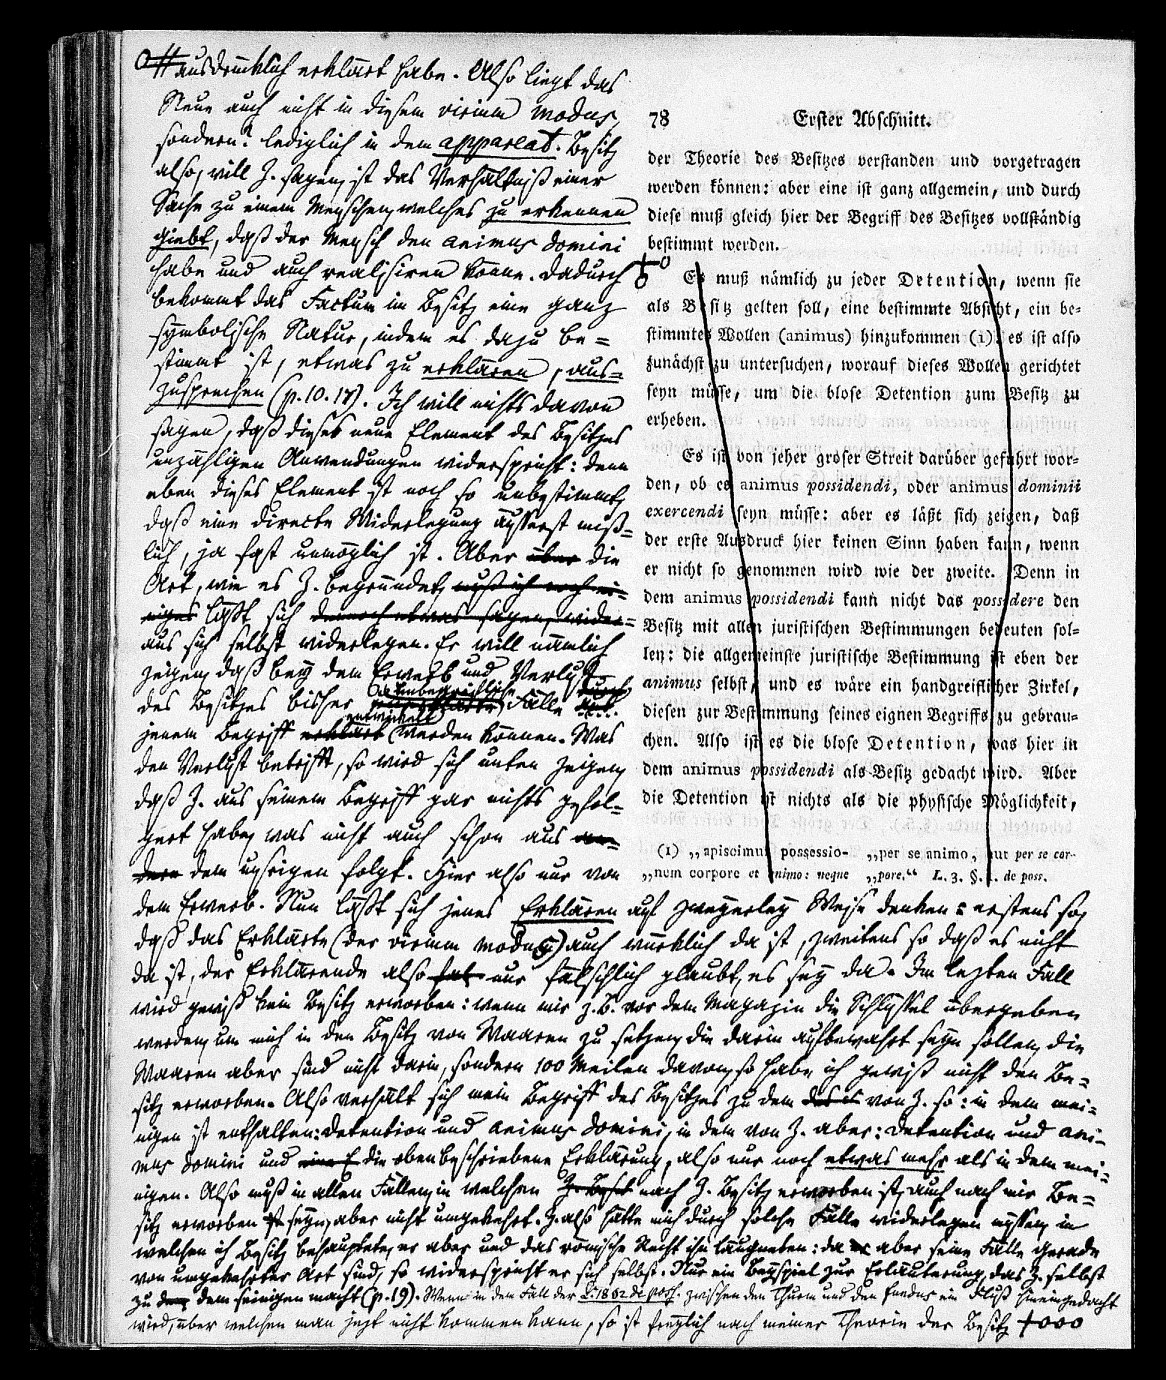 ausdrücklich erklärt habe. Also liegt das
Neue auch nicht in diesem vicinum modus,
sondern lediglich in dem appareat. Besitz
also, will Z. sagen, ist das Verhältniß einer
Sache zu einem Menschen, welches zu erkennen
giebt, daß der Mensch den animus domini
habe und auch realisiren könne. Dadurch
bekommt das Factum im Besitz eine ganz
symbolische Natur, indem es dazu be=
stimmt ist, etwas zu erklären, aus=
zusprechen (p. 10. 17). Ich will nichts davon
sagen, daß dieses neue Element des Besitzes
unzähligen Anwendungen widerspricht: denn
eben dieses Element ist noch so unbestimmt,
daß eine directe Widerlegung äusserst miß=
lich, ja fast unmöglich ist. Aber über die
Art, wie es Z. begründet, muß ich noch ei=
niges läßt sich dennoch etwas sagen, wider=
aus sich selbst widerlegen. Er will nämlich
zeigen, daß bey dem Erwerb und Verlust
des Besitzes bisher unbegreifliche Fälle durch
jenem Begriff erklärt entwickelt werden können. Was
den Verlust betrifft, so wird sich unten zeigen,
daß Z. aus seinem Begriff gar nichts gefol=
gert habe, was nicht auch schon aus an=
dern dem unsrigen folgt. Hier also nur von
dem Erwerb. Nun läßt sich jenes Erklären auf zweyerley Weise denken: erstens so,
daß das Erklärte (der vicinum modus) auch würklich da ist, zweitens so daß es nicht
da ist, der Erklärende also hat nur fälschlich glaubt, es sey da. Im lezten Fall
wird gewiß kein Besitz erworben: wenn mir z. B. vor dem Magazin die Schlüssel übergeben
werden, um mich in den Besitz von Waaren zu setzen, die darin aufbewahrt seyn sollen, die
Waaren aber sind nicht darin, sondern 100 Meilen davon, so habe ich gewiß nicht den Be=
sitz erworben. Also verhält sich mein Begriff des Besitzes zu dem von Z. so: in dem mei=
nigen ist enthalten: Detention und animus domini, in dem von Z. aber: Detention und ani=
mus domini und eine E die oben beschriebene Erklärung, also nur noch etwas mehr als in dem mei=
nigen. Also muß in allen Fällen, in welchen nach Z. Besitz erworben ist, auch nach mir Be=
sitz erworben ist seyn, aber nicht umgekehrt. Z. also hätte mich durch solche Fälle widerlegen müssen, in
welchen ich Besitz behauptete, er aber und das römische Recht ihn läugneten: da aber seine Fälle gerade
von umgekehrter Art sind, so widerspricht er sich selbst. Nur ein Beyspiel zur Erläuterung, das Z. selbst
zu dem seinigen macht (p. 19). Wenn in dem Fall der L. 18 § 2 de poss. zwischen den Thurm und den fundus ein Fluß hineingedacht
wird, über welchen man jezt nicht kommen kann, so ist freylich nach meiner Theorie der Besitz +ooo
78 Erster Abschnitt.
der Theorie des Besitzes verstanden und vorgetragen
werden können: aber eine ist ganz allgemein, und durch
diese muß gleich hier der Begriff des Besitzes vollständig
bestimmt werden.
Es muß nämlich zu jeder Detention, wenn sie
als Besitz gelten soll, eine bestimmte Absicht, ein be-
stimmtes Wollen (animus) hinzukommen (1): es ist also
zunächst zu untersuchen, worauf dieses Wollen gerichtet
seyn müsse, um die blose Detention zum Besitz zu
erheben.
Es ist von jeher groser Streit darüber geführt wor-
den, ob es animus possidendi, oder animus dominii
exercendi seyn müsse: aber es läßt sich zeigen, daß
der erste Ausdruck hier keinen Sinn haben kann, wenn
er nicht so genommen wird wie der zweite. Denn in
dem animus possidendi kann nicht das possidere den
Besitz mit allen juristischen Bestimmungen bedeuten sol-
len: die allgemeinste juristische Bestimmung ist eben der
animus selbst, und es wäre ein handgreiflicher Zirkel,
diesen zur Bestimmung seines eignen Begriffs zu gebrau-
chen. Also ist es die blose Detention, was hier in
dem animus possidendi als Besitz gedacht wird. Aber
die Detention ist nichts als die physische Möglichkeit,
(1) „apiscimur possessio-
„nem corpore et animo: neque
„per se animo, aut per se cor-
„pore.“ L. 3. §. 1. de poss.